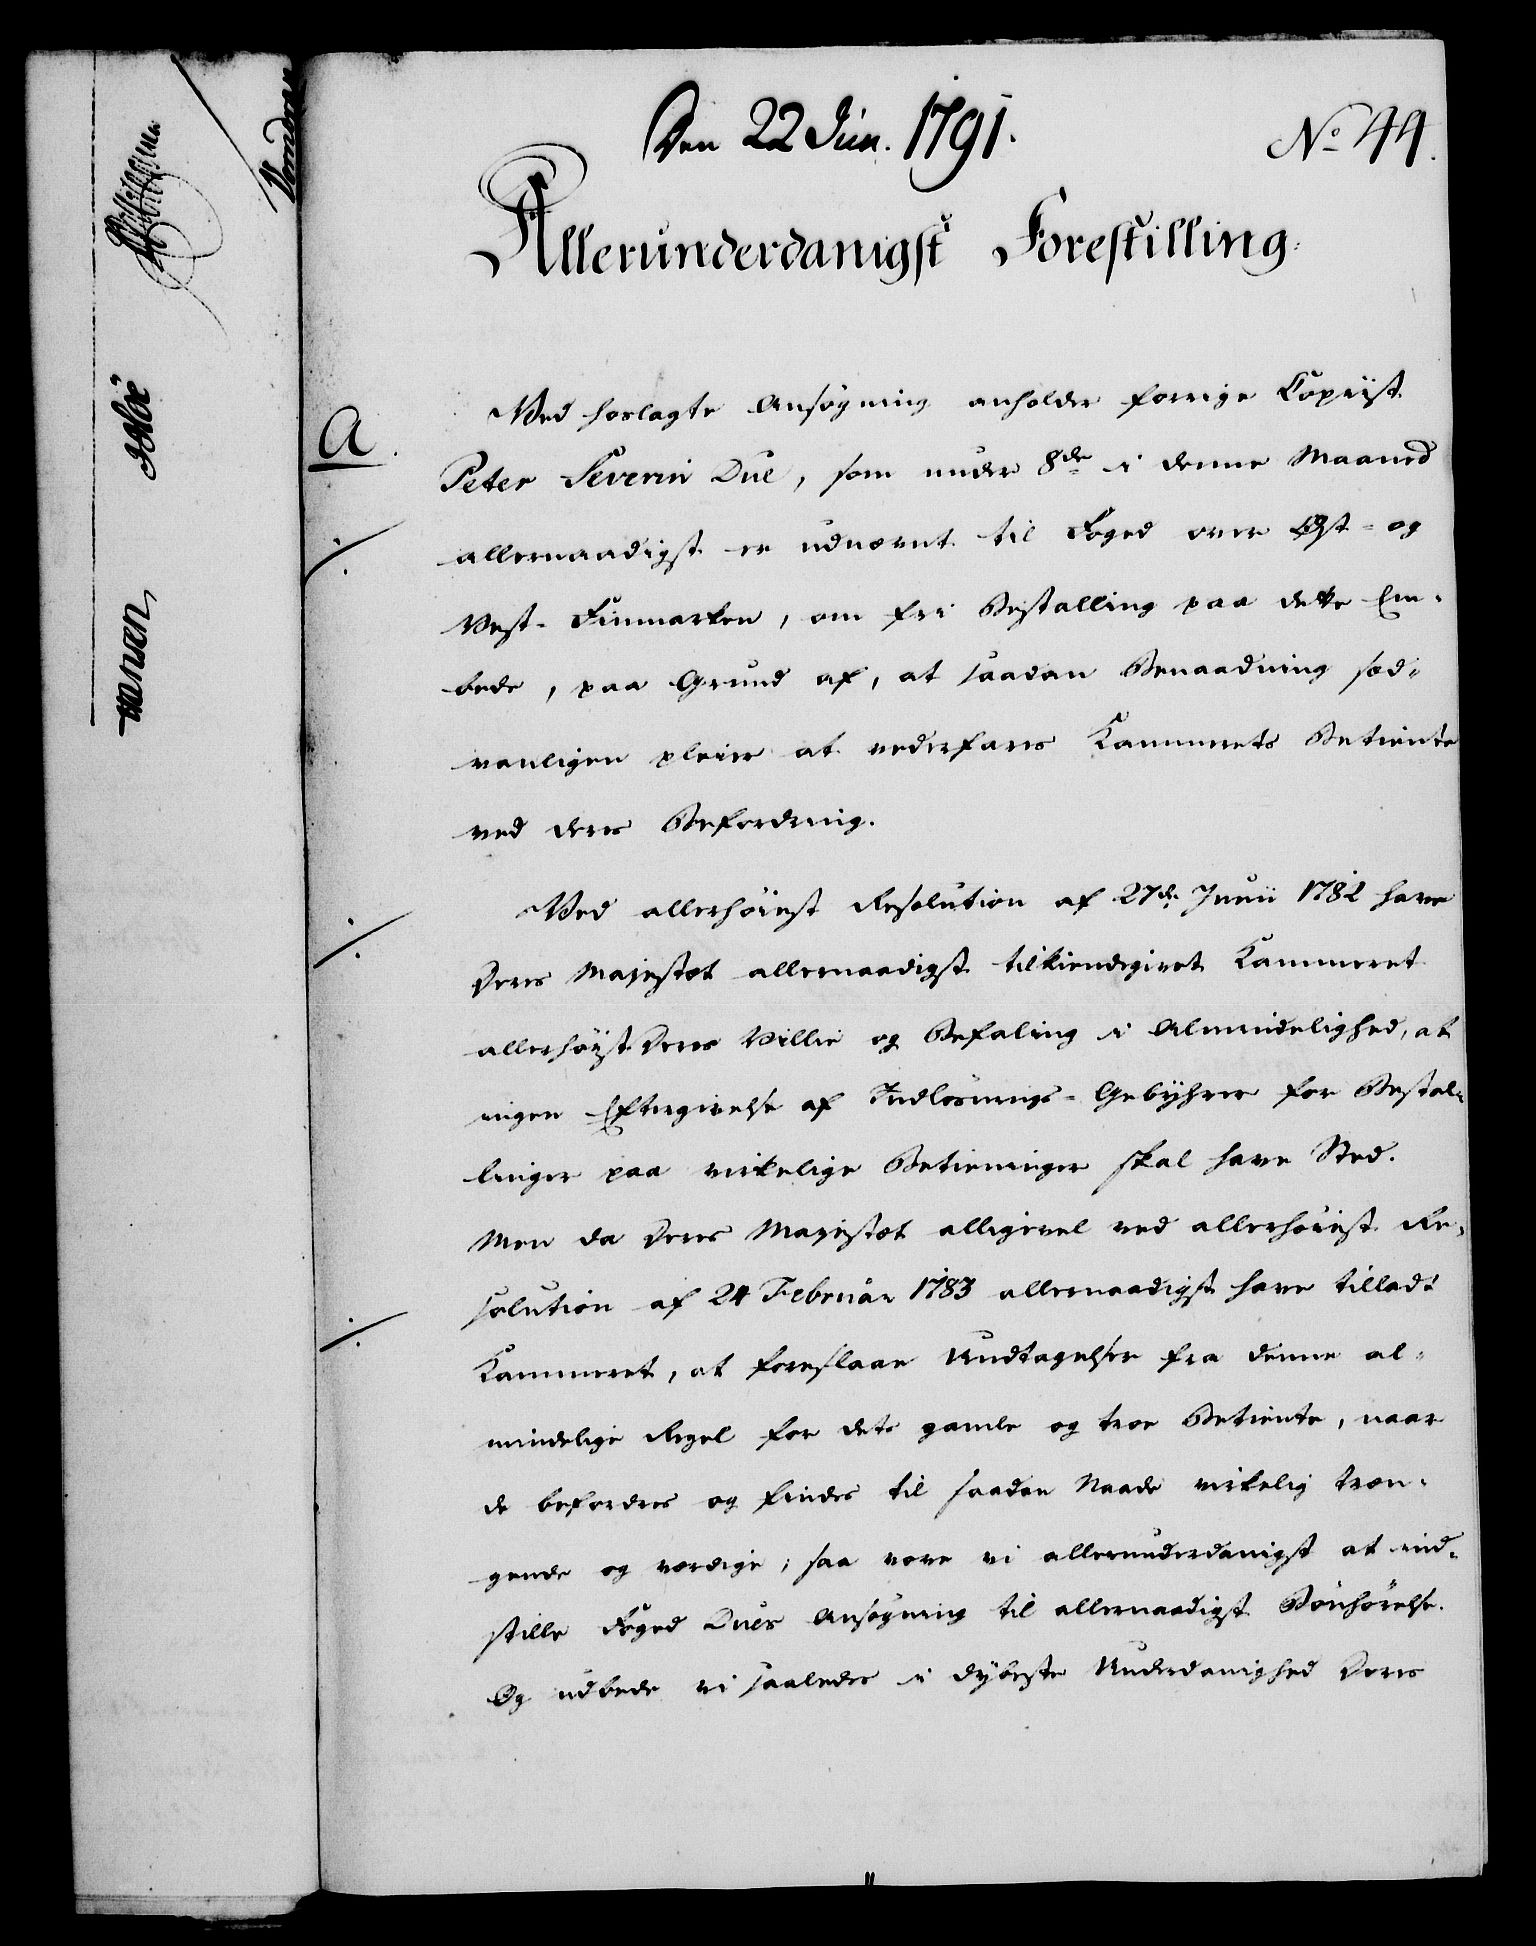 Den 22 Jun. 1791.
No 44.
Allerunderdanigst Forestilling.
A.
Ved hoslagte Ansøgning anholder forrige Copiist
Peter Severin Due, som under 8de i denne Maaned
allernaadigst er udnævnt til Foged over Øst- og
Vest-Finmarken, om fri Bestalling paa dette Em-
bede, paa Grund af, at saadan Benaadning sæd-
vanligen pleier at vederfares Kammerets Betiente
ved deres Befordring.
Ved allerhøiest Resolution af 27de Junii 1782 have
Deres Majestæt allernaadigst tilkiendegivet Kammeret
allerhøist Deres Villie og Befaling i Almindelighed, at
ingen Eftergivelse af Indløsnings-Gebyhrer for Bestal-
linger paa virkelige Betieninger skal have Sted.
Men da Deres Majestæt alligevel ved allerhøiest Re-
solution af 24 Februar 1783 allernaadigst have tilladt
Kammeret, at foreslaae Undtagelser fra denne al-
mindelige Regel for dets gamle og troe Betiente, naar
de befordres og findes til saadan Naade virkelig træn-
gende og værdige; saa vove vi allerunderdanigst at ind-
stille Foged Dues Ansøgning til allernaadigst Bønhørelse.
Og udbede vi saaledes i dybeste Underdanighed Deres